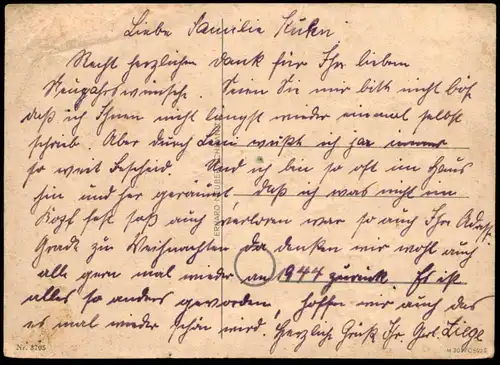 Liebe Familie Kuhn.
Recht herzlichen Dank für Ihre lieben
Neujahrswünsche. Seien Sie mir bitte nicht bös
daß ich Ihnen nicht längst wieder einmal selbst
schrieb. Aber durch Leni wußt ich ja immer
so weit Bescheid. Und ich bin so oft im Haus
hin und her geräumt daß ich was nicht im
Kopf fest saß auch verloren war so auch Ihre Adresse
Grade zu Weihnachten da denken wir wohl auch
alle gern mal wieder an 1944 zurück. Es ist
alles so anders geworden, hoffen wir auch das
es mal wieder schön wird. Herzliche Grüße Ihr. Gerl. Lilge
Nr. 3705